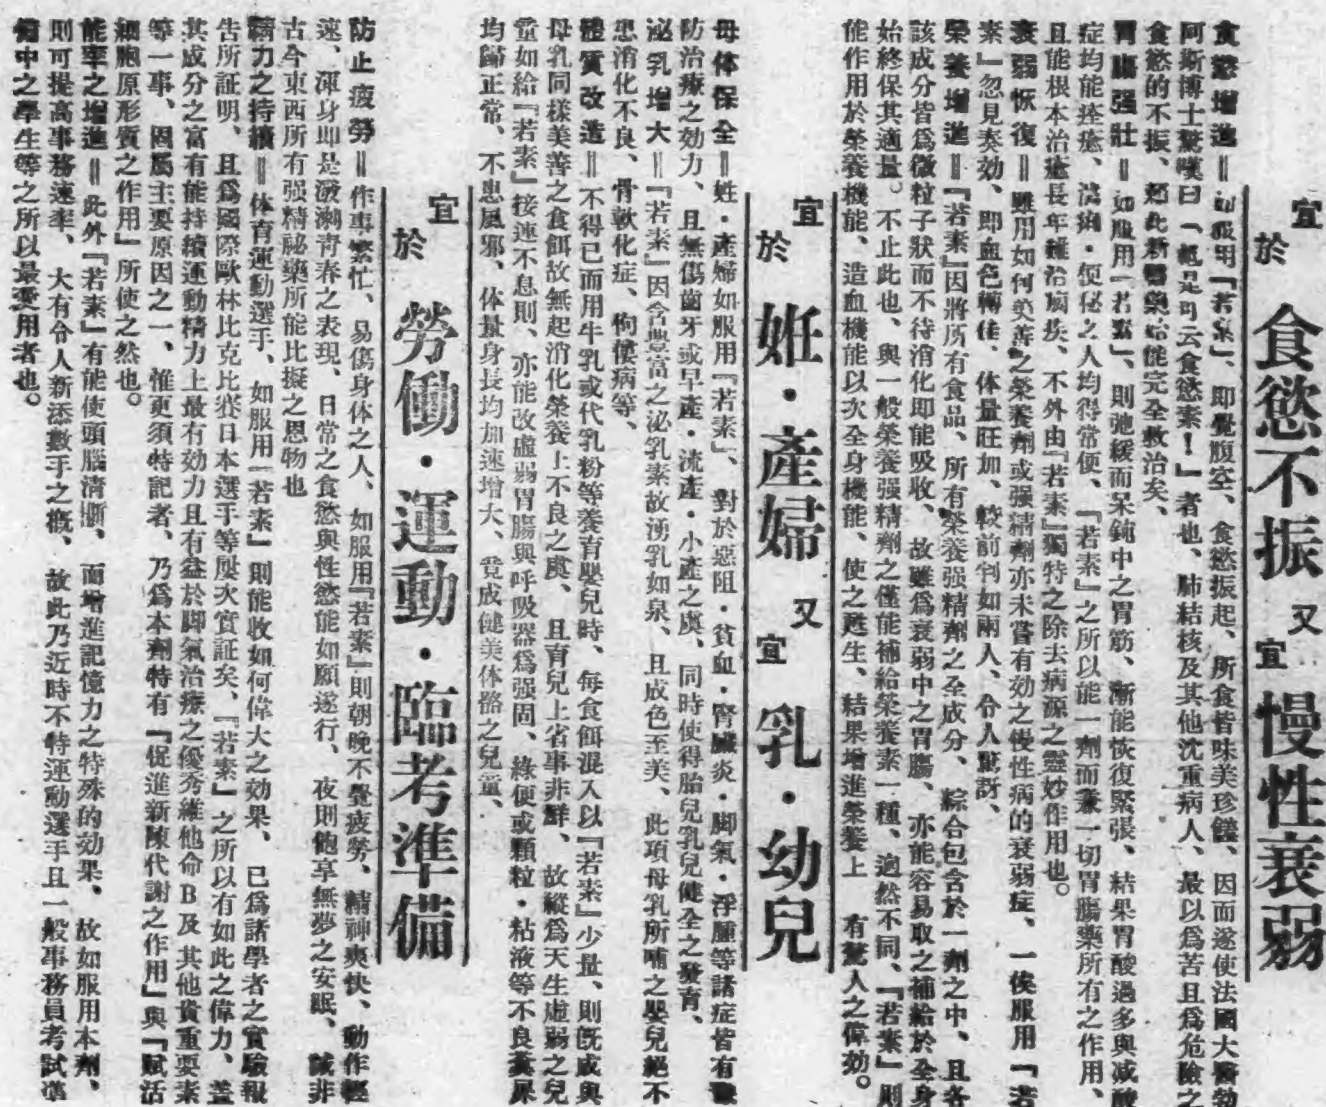 宜於 食慾不振 又宜 慢性衰弱
食慾增進＝如服用「若素」、即覺腹空、食慾振起、所食皆味美珍饈、因而遂使法國大醫勃
阿斯博士驚嘆曰「這是可云食慾素！」者也、肺結核及其他沈重病人、最以爲苦且爲危險之
食慾的不振、賴此新醫藥始能完全救治矣、
胃腸强壯＝如服用「若素」、則弛緩而呆鈍中之胃筋、漸能恢復緊張、結果胃酸過多與減酸
症均能痊癒、瀉痢・便秘之人均得常便、「若素」之所以能一劑而兼一切胃腸藥所有之作用、
且能根本治癒長年難治胸疾、不外由『若素』獨特之除去病源之靈妙作用也。
衰弱恢復＝雖用如何美善之榮養劑或强精劑亦未嘗有効之慢性病的衰弱症、一俟服用『若
素』忽見奏効、即血色轉佳、体量旺加、較前判如兩人、令人驚訝、
榮養增進＝『若素』因將所有食品、所有榮養强精劑之全成分、綜合包含於一劑之中、且各
該成分皆爲微粒子狀而不待消化即能吸收、故雖爲衰弱中之胃腸、亦能容易取之補給於全身
始終保其適量。不止此也、與一般榮養强精劑之僅能補給榮養素一種、適然不同、「若素」則
能作用於榮養機能、造血機能以次全身機能、使之甦生、結果增進榮養上 有驚人之偉効。
宜於 姙・產婦 又宜 乳・幼兒
母体保全＝姙・產婦如服用『若素』、對於惡阻・貧血・腎臟炎・脚氣・浮腫等諸症皆有
防治療之効力、且無傷齒牙或早產・流產・小產之虞、同時使得胎兒乳兒健全之發育、
泌乳增大＝『若素』因含豐富之泌乳素故湧乳如泉、且成色至美、此項母乳所哺之嬰兒絕不
患消化不良、骨軟化症、佝僂病等、
體質改造＝不得已而用牛乳或代乳粉等養育嬰兒時、每食餌混入以『若素』少量、則既成與
母乳同樣美善之食餌故無起消化榮養上不良之虞、且育兒上省事非鮮、故縱爲天生虛弱之兒
童如給『若素』接連不息則、亦能改虛弱胃腸與呼吸器爲强固、綠便或顆粒・粘液等不良糞尿
均歸正常、不患風邪、体量身長均加速增大、竟成健美体骼之兒童、
宜於 勞働・運動・臨考準備
防止疲勞＝作事繁忙、易傷身体之人、如服用『若素』則朝晚不覺疲勞、精神爽快、動作輕
速、渾身即是潑溂青春之表現、日常之食慾與性慾能如願遂行、夜則飽享無夢之安眠、誠非
古今東西所有强精祕藥所能比擬之恩物也
精力之持續＝体育運動選手、如服用「若素」則能收如何偉大之効果、已爲諸學者之實驗報
告所証明、且爲國際歐林比克比賽日本選手等屢次實証矣、『若素』之所以有如此之偉力、蓋
其成分之富有能持續運動精力上最有効力且有益於脚氣治療之優秀維他命B及其他貴重要素
等一事、固屬主要原因之一、惟更須特記者、乃爲本劑特有『促進新陳代謝之作用」與「賦活
細胞原形質之作用』所使之然也。
能率之增進＝此外『若素』有能使頭腦清晰、而增進記憶力之特殊的効果、故如服用本劑、
則可提高事務速率、大有令人新添數手之槪、故此乃近時不特運動選手且一般事務員考試準
備中之學生等之所以最愛用者也。